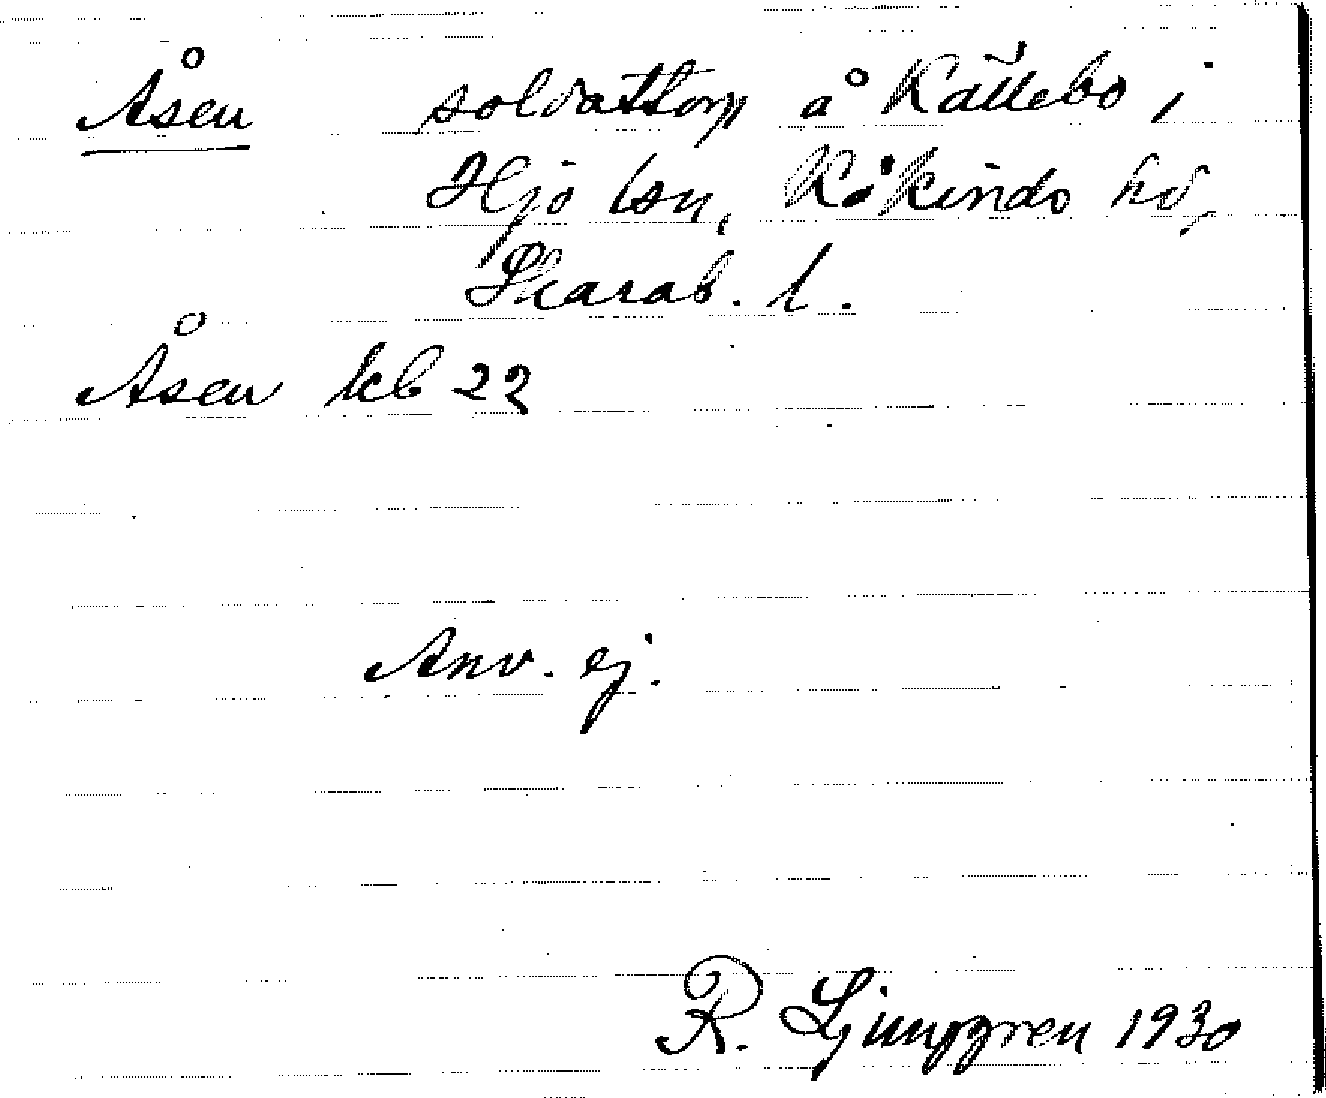 Åsen soldattorp å Källebo i
Hjo lsn, Kåkinds hd,
Skarab. l.
Åsen kb 22
Anv. ej.
R. Ljunggren 1930